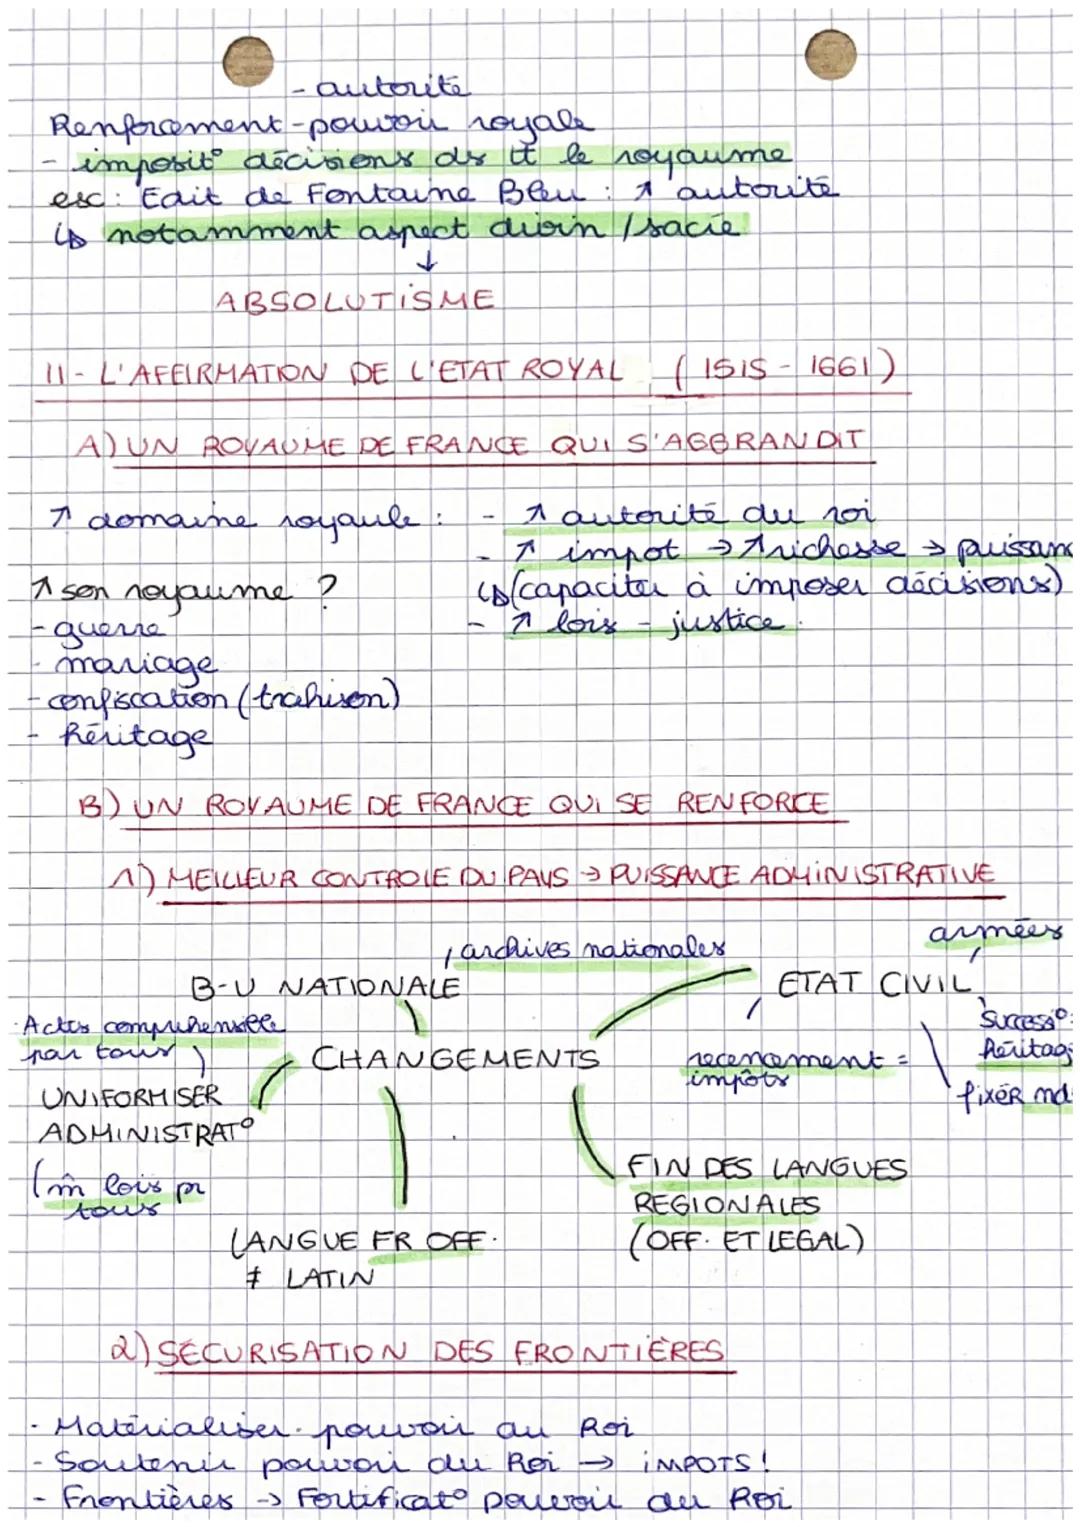 - autorité
Renforcement - pouvoir royale
- imposit° décisions ds tt le royaume
esc : Edit de Fontaine Bleu : ↗ autorité
↳ notamment aspect divin / sacré
↓
ABSOLUTISME
II - L'AFFIRMATION DE L'ETAT ROYAL ( 1515 - 1661 )
A) UN ROYAUME DE FRANCE QUI S'AGGRANDIT
↗ domaine royaule : - ↗ autorité du roi
- ↗ impot → ↗ richesse → puissan
↗ son royaume ? ↳ (capaciter à imposer décisions)
- guerre - ↗ lois - justice
- mariage
- confiscation (trahison)
- héritage
B) UN ROYAUME DE FRANCE QUI SE RENFORCE
1) MEILLEUR CONTROLE DU PAYS → PUISSANCE ADMINISTRATIVE
armées
archives nationales
B-U NATIONALE
ETAT CIVIL
Actes comprehensible
par tous
successi°
héritag
CHANGEMENTS
recencement =
impôts
fixer
UNIFORMISER
ADMINISTRAT°
(m̂ lois pr
tous
FIN DES LANGUES
REGIONALES
(OFF. ET LEGAL)
LANGUE FR OFF.
≠ LATIN
2) SECURISATION DES FRONTIÈRES
- Matérialiser pouvoir au Roi
- Soutenir pouvoir du Roi → IMPOTS !
- Frontières → Fortificat° pouvoir du Roi